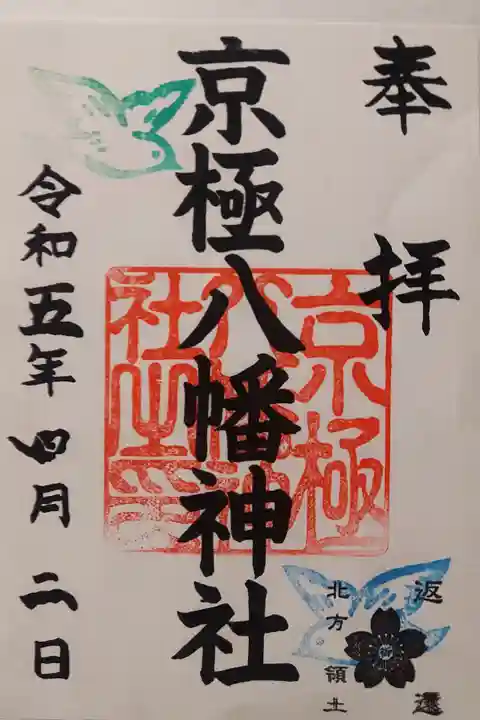 奉拝
京極八幡神社
京極八幡神社之印
令和五年四月二日
北方領土
返還